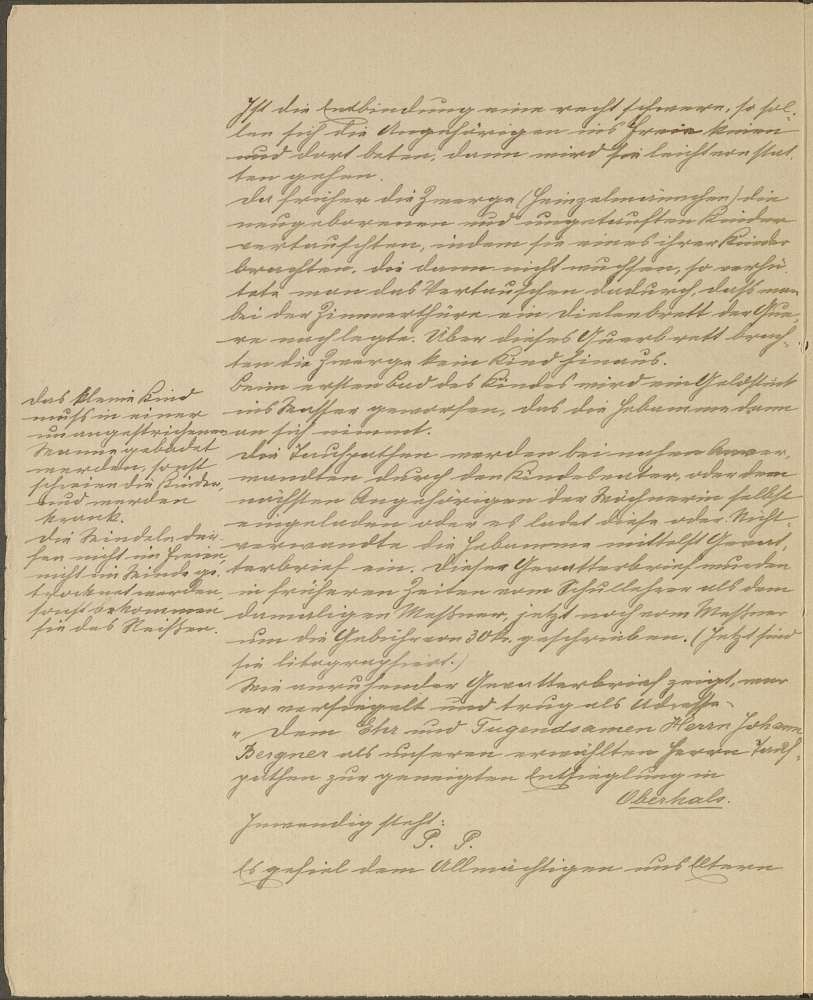 Ist die Entbindung eine recht schwere, so sol-
len sich die Angehörigen ins Freie knien
und dort beten, dann wird sie leichter vonstat-
ten gehen.
Da früher die Zwerge (Heinzelmännchen) die
neugeborenen und ungetauften Kinder
vertauschten, indem sie eines ihrer Kinder
brachten, die dann nicht wuchsen, so verhü-
tete man das Vertauschen dadurch, dass man
bei der Zimmerthüre ein Dielenbrett der Que-
re nach legte. Über dieses Querbrett brach-
ten die Zwerge kein Kind hinaus.
Beim ersten Bad des Kindes wird ein Geldstück
ins Wasser geworfen, das die Hebamme dann
an sich nimmt.
Die Taufpathen werden bei nahen Anver-
wandten durch den Kindesvater, oder dem
nächsten Angehörigen der Wöchnerin selbst
eingeladen oder es ladet diese oder Nicht-
verwandte die Hebamme mittelst Gevat-
terbrief ein. Dieser Gevatterbrief wurden
in früheren Zeiten vom Schullehrer als dem
damaligen Messner, jetzt noch vom Messner
um die Gebühr von 30 kr. geschrieben. (Jetzt sind
sie litographiert.)
Wie anruhender Gevatterbrief zeigt, war
er versiegelt und trug als Adresse.
"Dem Ehr und Tugendsamen Herrn Johann
Bergner als unseren erwählten Herrn Tauf-
pathen zur geneigten Entsieglung in
Oberhals.
Inwendig steht:
P. P.
Es gefiel dem Allmächtigen uns Eltern
Das kleine Kind
muss in einer
unangestrichenen
Wanne gebadet
werden, sonst
schreien die Kinder,
und werden
krank.
Die Windeln dür-
fen nicht im Freien,
nicht im Winde ge-
trocknet werden,
sonst bekommen
sie das Reißen.